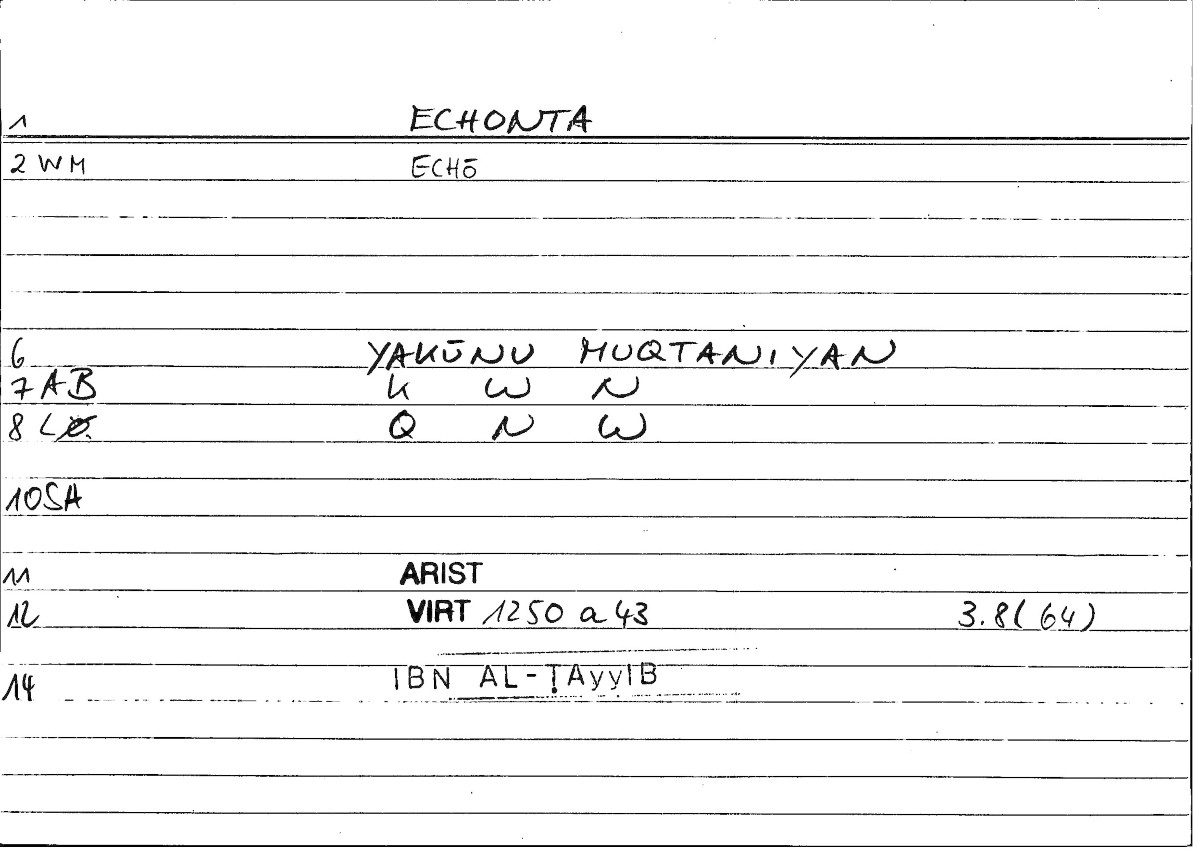 1 ECHONTA
2 WM ECHŌ
6 YAKŪNU MUQTANIYAN
7 AB K W N
8 Q N W
10 SA
11 ARIST
12 VIRT 1250 a 43 3.8(64)
14 IBN AL-ṬAyyIB